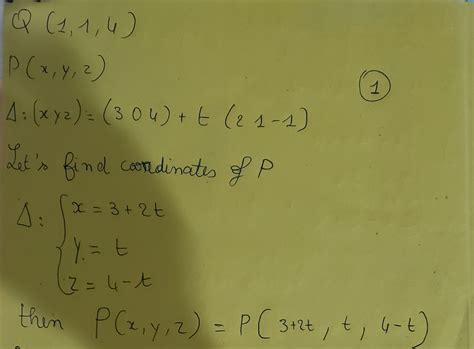 Q (1, 1, 4)
P(x, y, z)
1
Δ: (x y z) = (3 0 4) + t (2 1 -1)
Let's find coordinates of P
Δ: { x = 3 + 2t
y = t
z = 4 - t
then P(x, y, z) = P( 3+2t , t , 4-t)